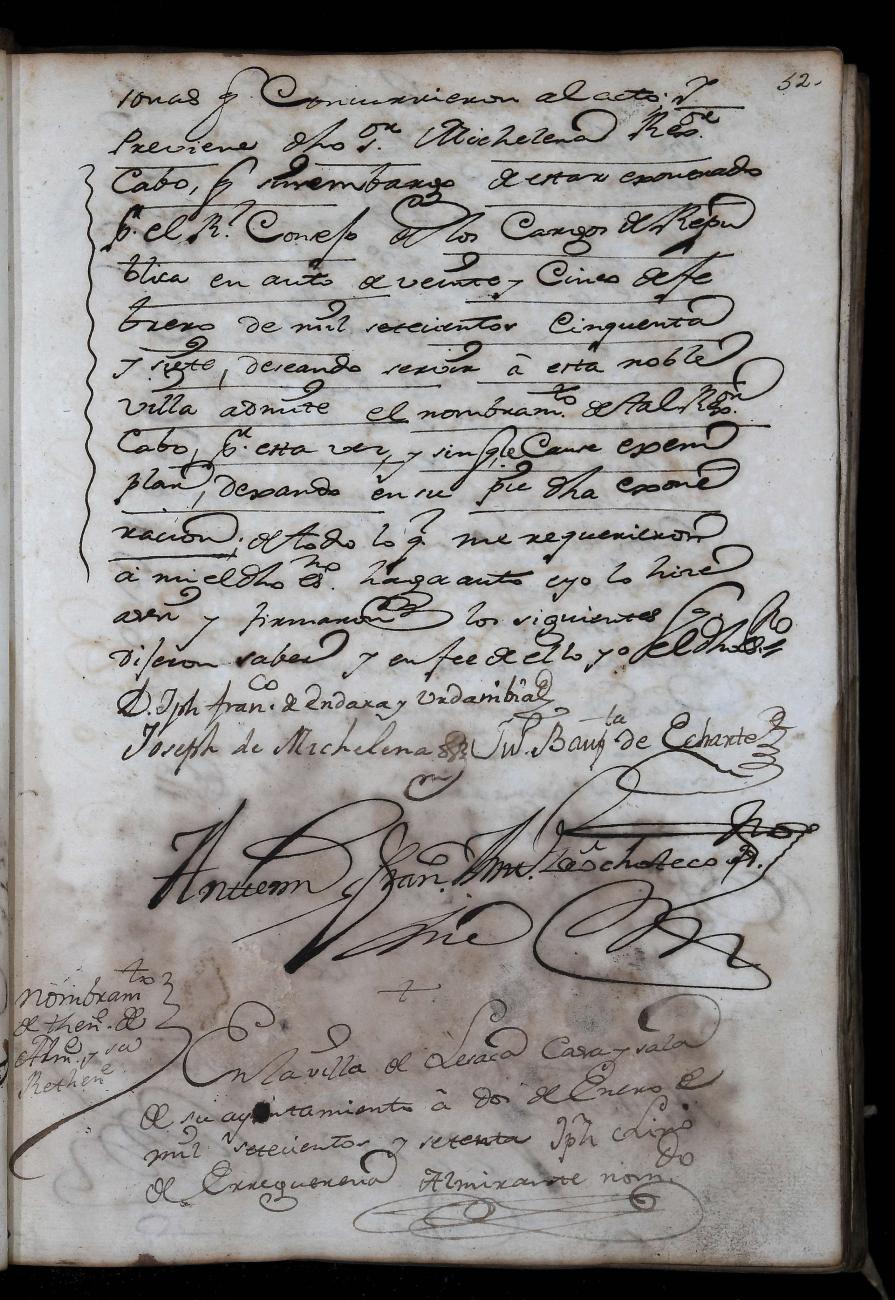 52.
sonas q̃ Concurrieron al acto; Y
Previene dho s.or Michelena Reg.or
Cabo, q̃ sinembargo de estar exonerado
p.r el R.l Consejo de los Cargos de Repu
blica en auto de veinte y Cinco de fe
brero de mil setecientos Cinquenta
y siete, deseando servir â esta noble
villa admite el nombram.to de tal Reg.or
Cabo, p.r esta vez, y sin q̃ le Cause exem
plar, dexando en su pie dha exone
racion; de todo lo q̃ me requerieron
â mi el dho es.no haga auto eyo lo hize
asen y firmaron los siguientes q̃
dijeron saber y enfee de ello yo el dho es.no
D. Jph fran.co de Endara y Urdanibia
Joseph de Michelena
Ju.n Baup.ta de Echarte
Anttem Fran.co Ant.o
Nombram.to
de then.e de
Alm.e y su
Rethen.e
En la villa de Lesaca Casa y sala
de su ayuntamiento â dos de Enero de
mil setecientos y setenta Jph
de Errequerena Almirante nom.do